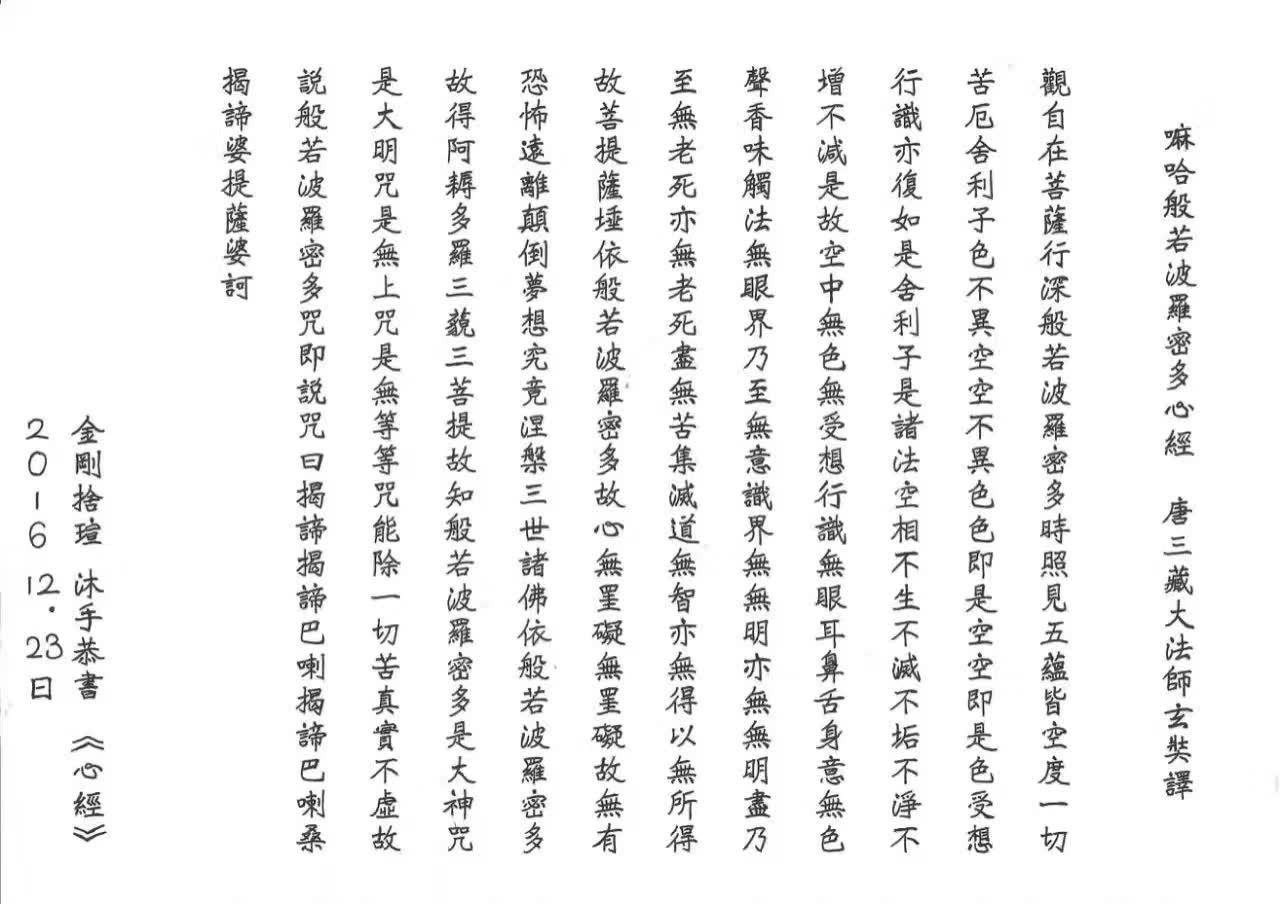 嘛哈般若波羅密多心經　唐三藏大法師玄奘譯
觀自在菩薩行深般若波羅密多時照見五蘊皆空度一切
苦厄舍利子色不異空空不異色色即是空空即是色受想
行識亦復如是舍利子是諸法空相不生不滅不垢不淨不
增不減是故空中無色無受想行識無眼耳鼻舌身意無色
聲香味觸法無眼界乃至無意識界無無明亦無無明盡乃
至無老死亦無老死盡無苦集滅道無智亦無得以無所得
故菩提薩埵依般若波羅密多故心無罣礙無罣礙故無有
恐怖遠離顛倒夢想究竟涅槃三世諸佛依般若波羅密多
故得阿耨多羅三藐三菩提故知般若波羅密多是大神咒
是大明咒是無上咒是無等等咒能除一切苦真實不虛故
説般若波羅密多咒即説咒曰揭諦揭諦巴喇揭諦巴喇桑
揭諦婆提薩婆訶
金剛捨瑄 沐手恭書 《心經》
2016 12.23日